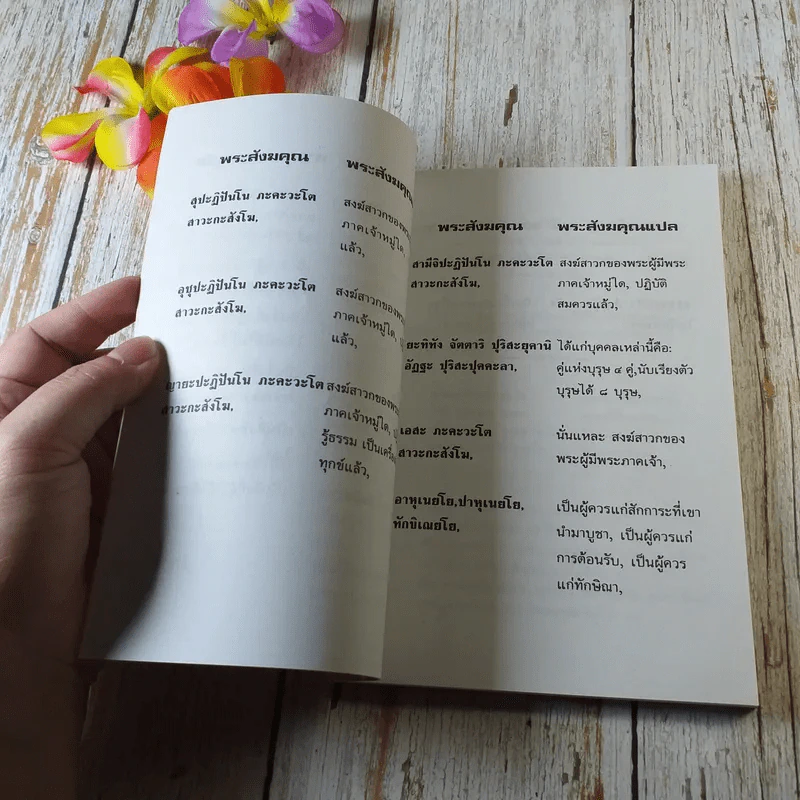 พระสังฆคุณ
พระสังฆคุณ
สุปะฏิปันโน ภะคะวะโต
สาวะกะสังโฆ,
สงฆ์สาวกของ
ภาคเจ้าหมู่ใด,
แล้ว,
อุชุปะฏิปันโน ภะคะวะโต
สาวะกะสังโฆ,
สงฆ์สาวกของ
ภาคเจ้าหมู่ใด,
แล้ว,
ญายะปะฏิปันโน ภะคะวะโต
สาวะกะสังโฆ,
สงฆ์สาวกของ
ภาคเจ้าหมู่ใด,
รู้ธรรม
ทุกข์แล้ว,
พระสังฆคุณ
พระสังฆคุณแปล
สามีจิปะฏิปันโน ภะคะวะโต
สาวะกะสังโฆ,
สงฆ์สาวกของพระผู้มีพระ
ภาคเจ้าหมู่ใด, ปฏิบัติ
สมควรแล้ว,
ยะทิทัง จัตตาริ ปุริสะยุคานิ
อัฏฐะ ปุริสะปุคคะลา,
ได้แก่บุคคลเหล่านี้คือ:
คู่แห่งบุรุษ ๔ คู่,นับเรียงตัว
บุรุษได้ ๘ บุรุษ,
เอสะ ภะคะวะโต
สาวะกะสังโฆ,
นั่นแหละ สงฆ์สาวกของ
พระผู้มีพระภาคเจ้า,
อาหุเนยโย,ปาหุเนยโย,
ทักขิเณยโย,
เป็นผู้ควรแก่สักการะที่เขา
นำมาบูชา, เป็นผู้ควรแก่
การต้อนรับ, เป็นผู้ควร
แก่ทักษิณา,